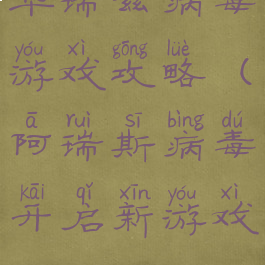 瑞 病毒
yóu xì gōng lüè
游戏攻略（
ā ruì sī bìng dú
阿瑞斯病毒
kāi qǐ xīn yóu xì
开启新游戏